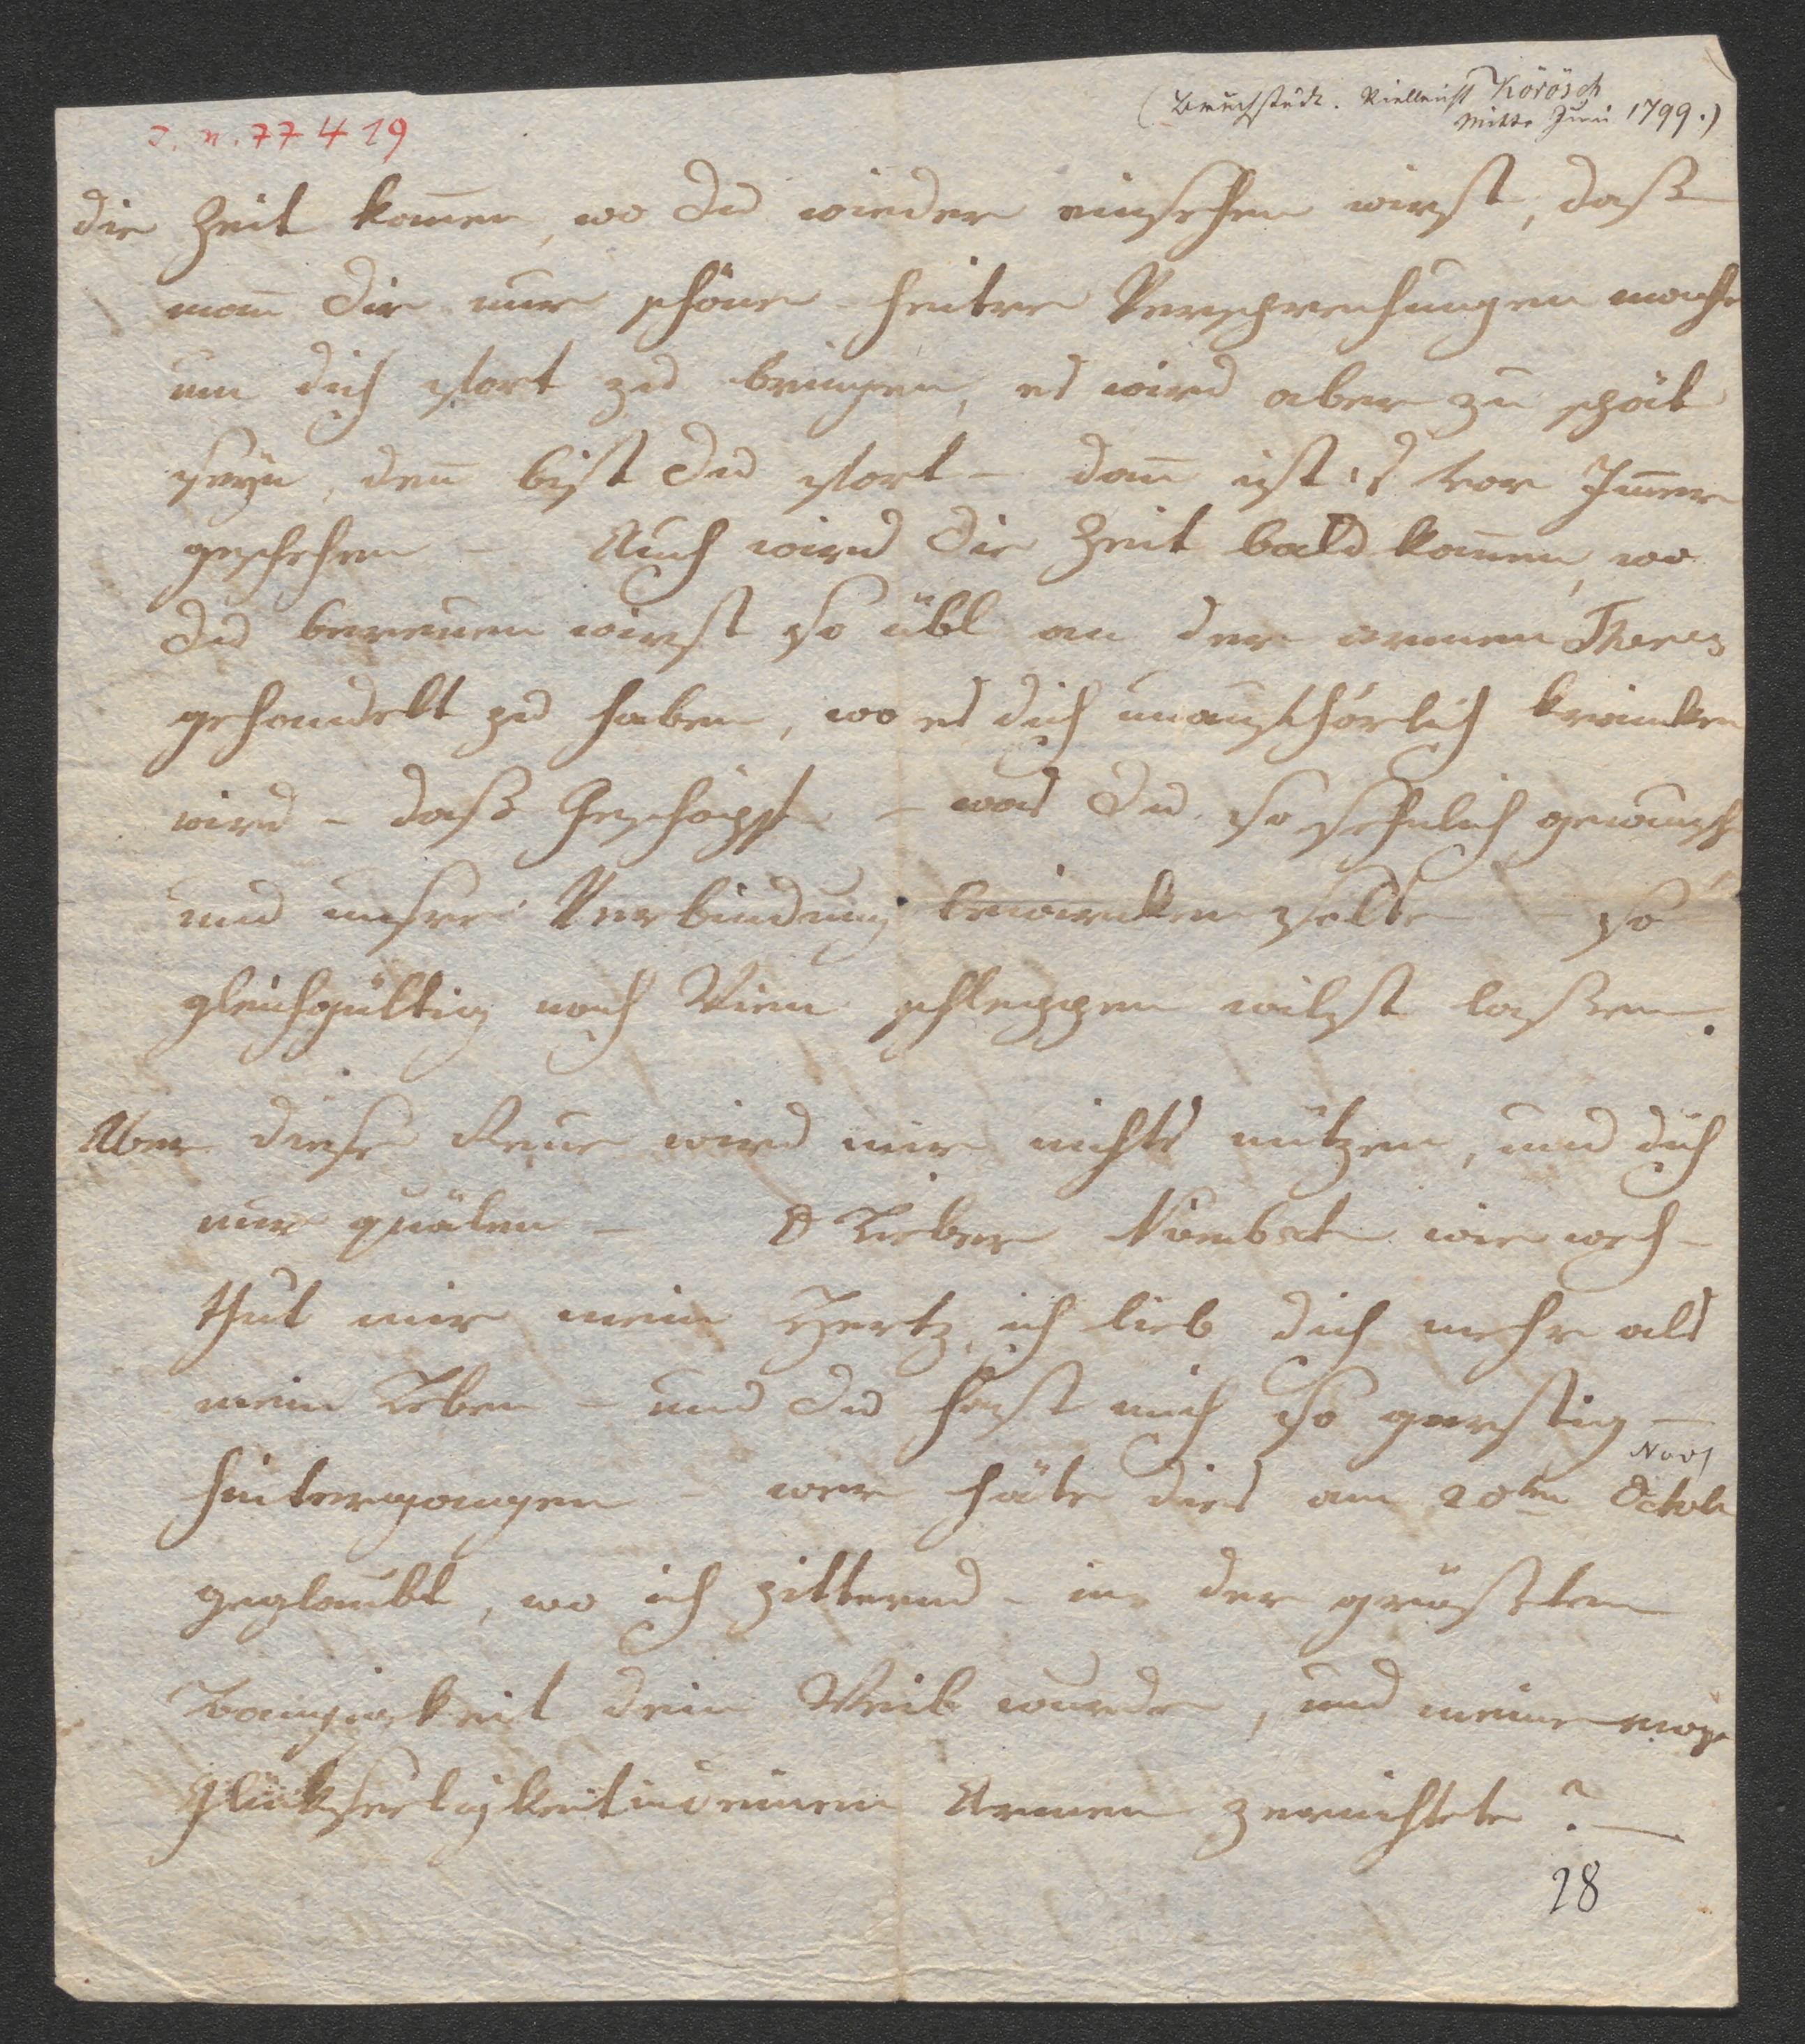 J. N. 77419
(Bruchstück. Vielleicht Körösch
Mitte Juni 1799.)
die Zeit kom̄en, wo du wieder einsehen wirst, daß
man̄ dir nur schöne - heitre Versprechungen mach
um dich fort zu bringen, es wird aber zu spät
seÿn, den̄ bist du fort - dan̄ ist es vor Im̄er
geschehen - Auch wird die Zeit bald kom̄en, wo
du bereuen wirst so übl an der armen Theres
gehandelt zu haben, wo es dich unaufhörlich kränken
wird - daß Geschöpf - was du so sehnlich gewünsch
und unsre Verbindung bewirken solte so
gleichgültig nach Wien schleppen wilst laßen.
Aber diese Reue wird mir nichts nützen, und dich
nur quälen - O Lieber wie weh -
thut mir mein Hertz, ich lieb dich mehr als
mein Leben - und du hast mich so garstig -
hintergangen - wer häte dies am 20ten Octob
Nov
geglaubt, wo ich zitternd - in der grösten
Bangigkeit dein Weib wurde, und meine
Glückseeligkeit in deinen Armen zernichtete? -
28